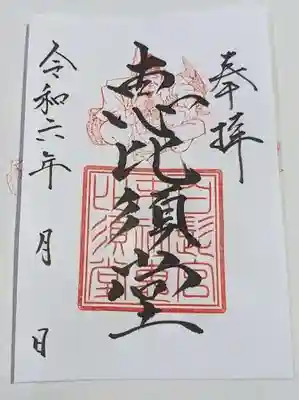 奉拝
恵比須堂
令和六年 月 日